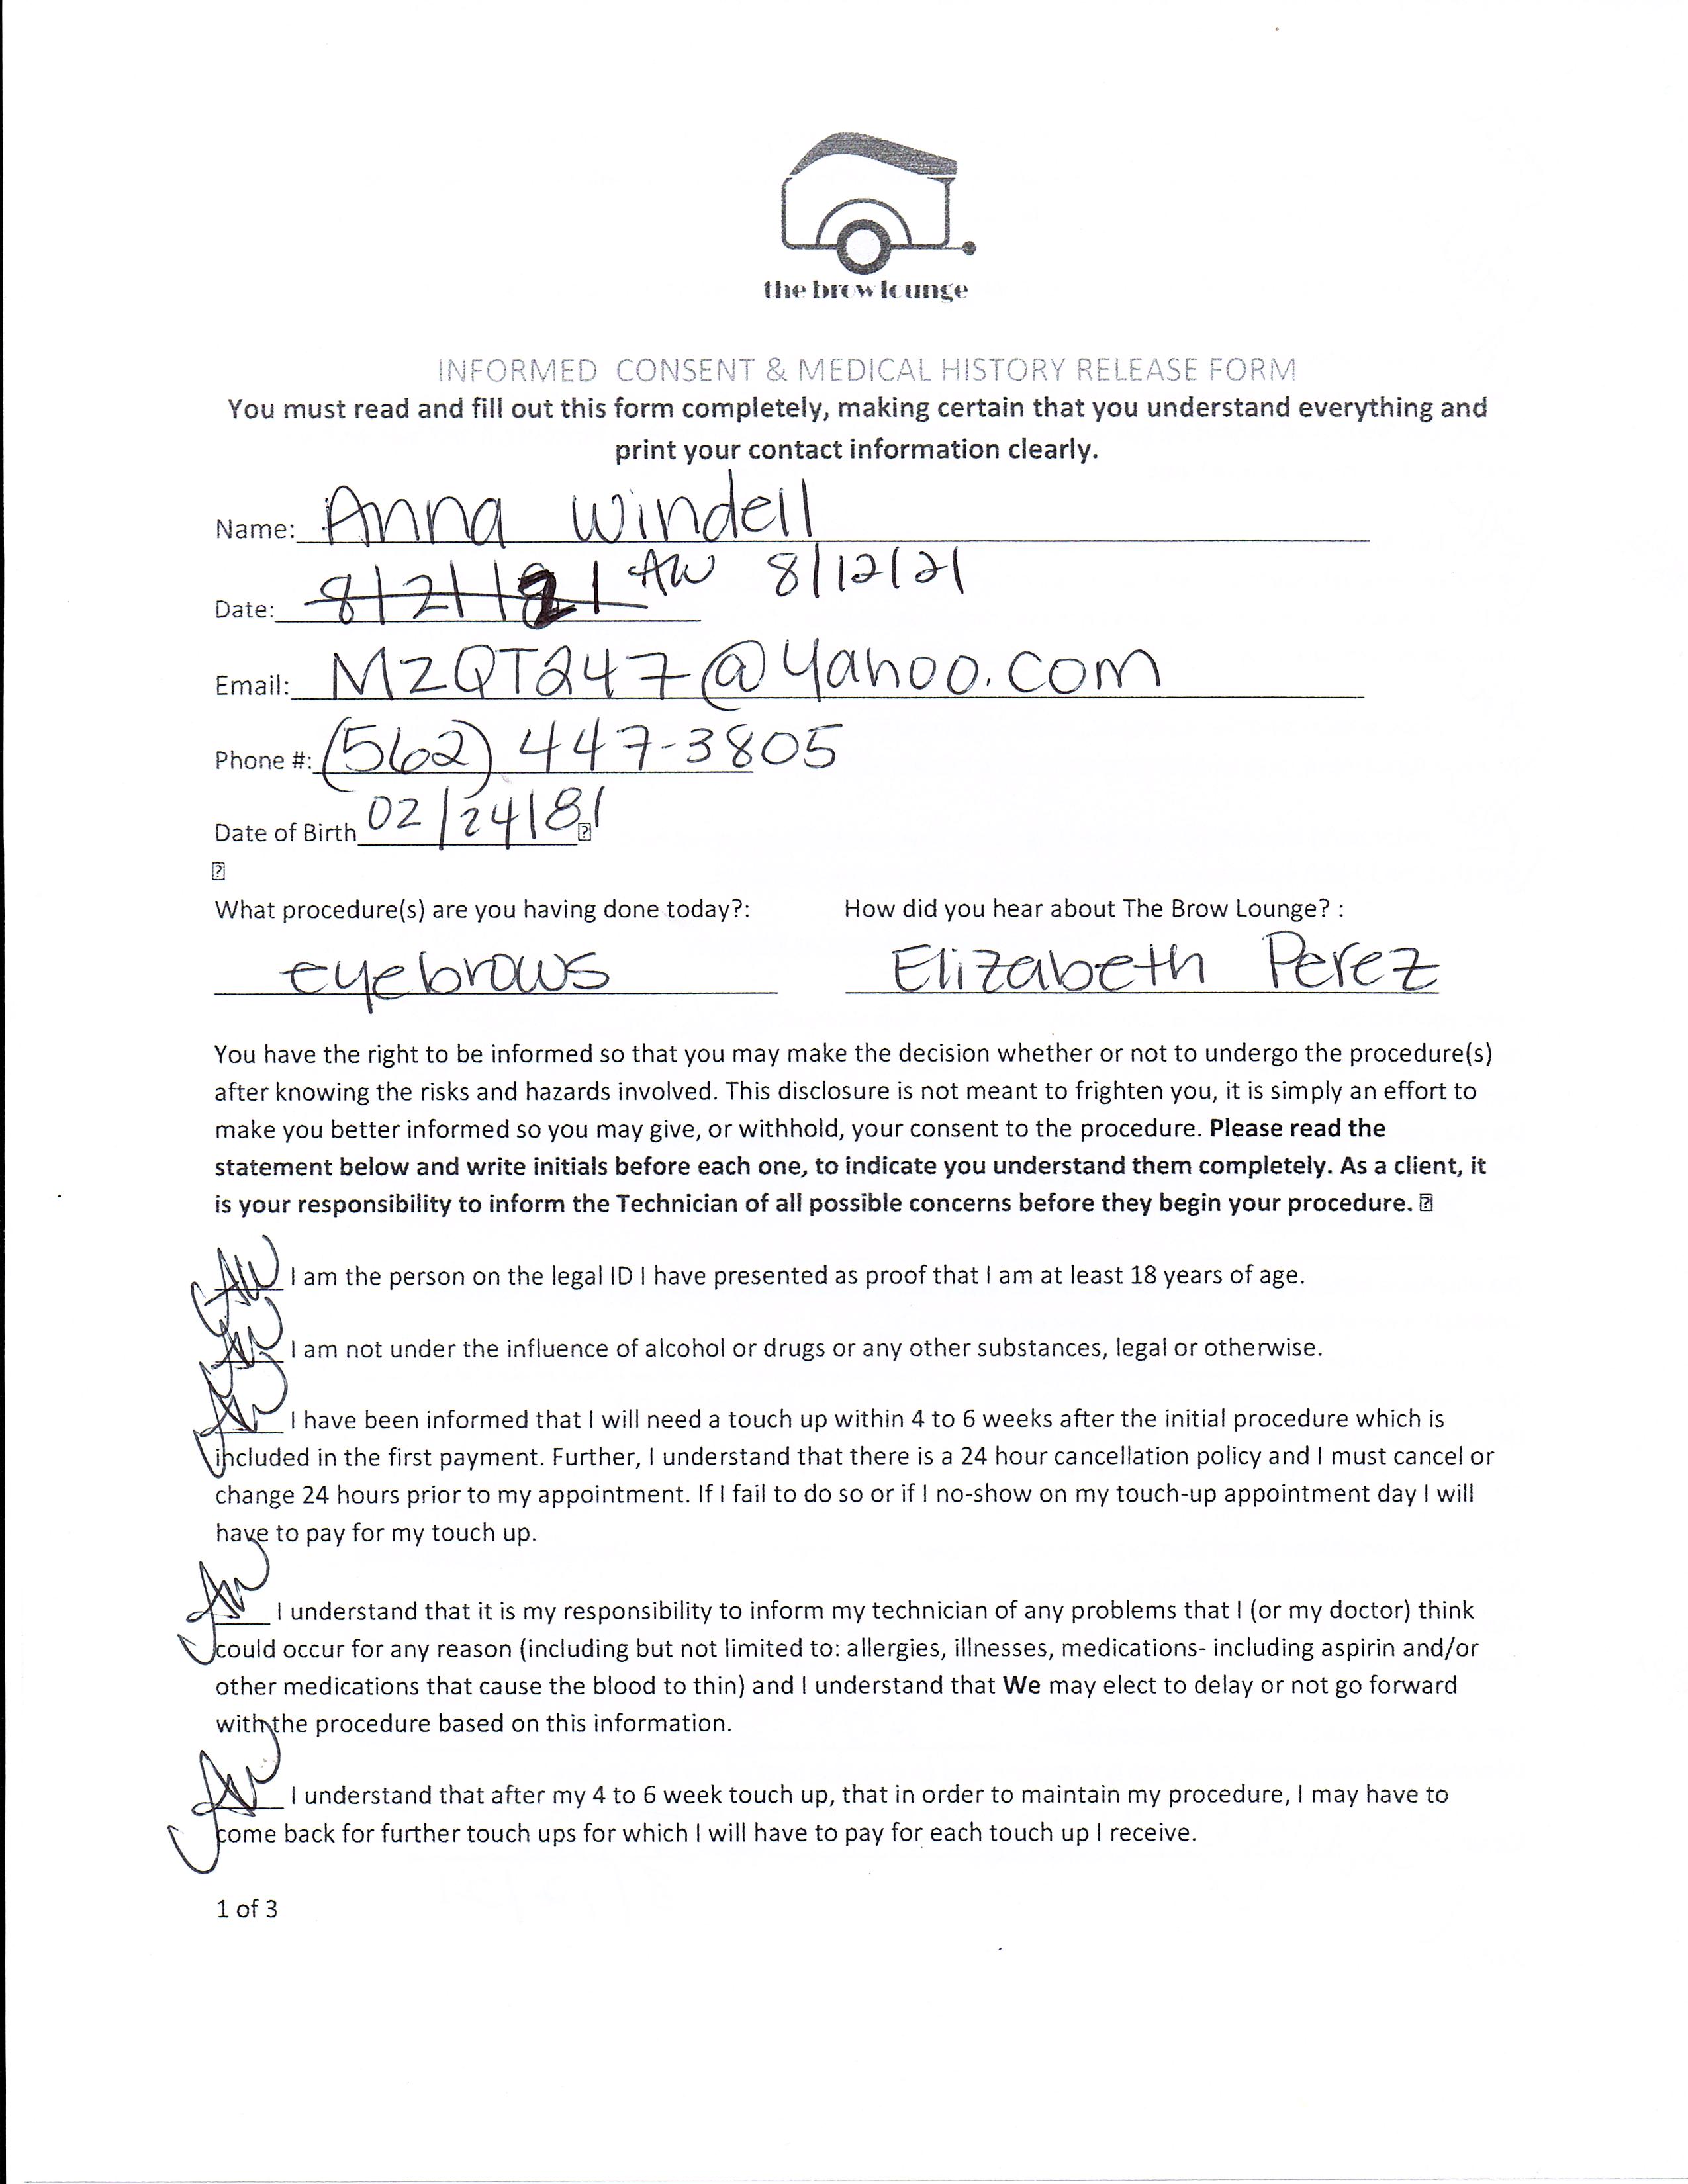 the brow lounge
INFORMED CONSENT & MEDICAL HISTORY RELEASE FORM
You must read and fill out this form completely, making certain that you understand everything and
print your contact information clearly.
Name: Anna Windell
AW 8/12/21
Date: 8/21/21
Email: MZQT247@yahoo.com
Phone #: (562) 447-3805
Date of Birth 02/24/81
What procedure(s) are you having done today?: How did you hear about The Brow Lounge? :
eyebrows Elizabeth Perez
You have the right to be informed so that you may make the decision whether or not to undergo the procedure(s)
after knowing the risks and hazards involved. This disclosure is not meant to frighten you, it is simply an effort to
make you better informed so you may give, or withhold, your consent to the procedure. Please read the
statement below and write initials before each one, to indicate you understand them completely. As a client, it
is your responsibility to inform the Technician of all possible concerns before they begin your procedure.
AW I am the person on the legal ID I have presented as proof that I am at least 18 years of age.
AW I am not under the influence of alcohol or drugs or any other substances, legal or otherwise.
AW I have been informed that I will need a touch up within 4 to 6 weeks after the initial procedure which is
included in the first payment. Further, I understand that there is a 24 hour cancellation policy and I must cancel or
change 24 hours prior to my appointment. If I fail to do so or if I no-show on my touch-up appointment day I will
have to pay for my touch up.
AW I understand that it is my responsibility to inform my technician of any problems that I (or my doctor) think
could occur for any reason (including but not limited to: allergies, illnesses, medications- including aspirin and/or
other medications that cause the blood to thin) and I understand that We may elect to delay or not go forward
with the procedure based on this information.
AW I understand that after my 4 to 6 week touch up, that in order to maintain my procedure, I may have to
come back for further touch ups for which I will have to pay for each touch up I receive.
1 of 3